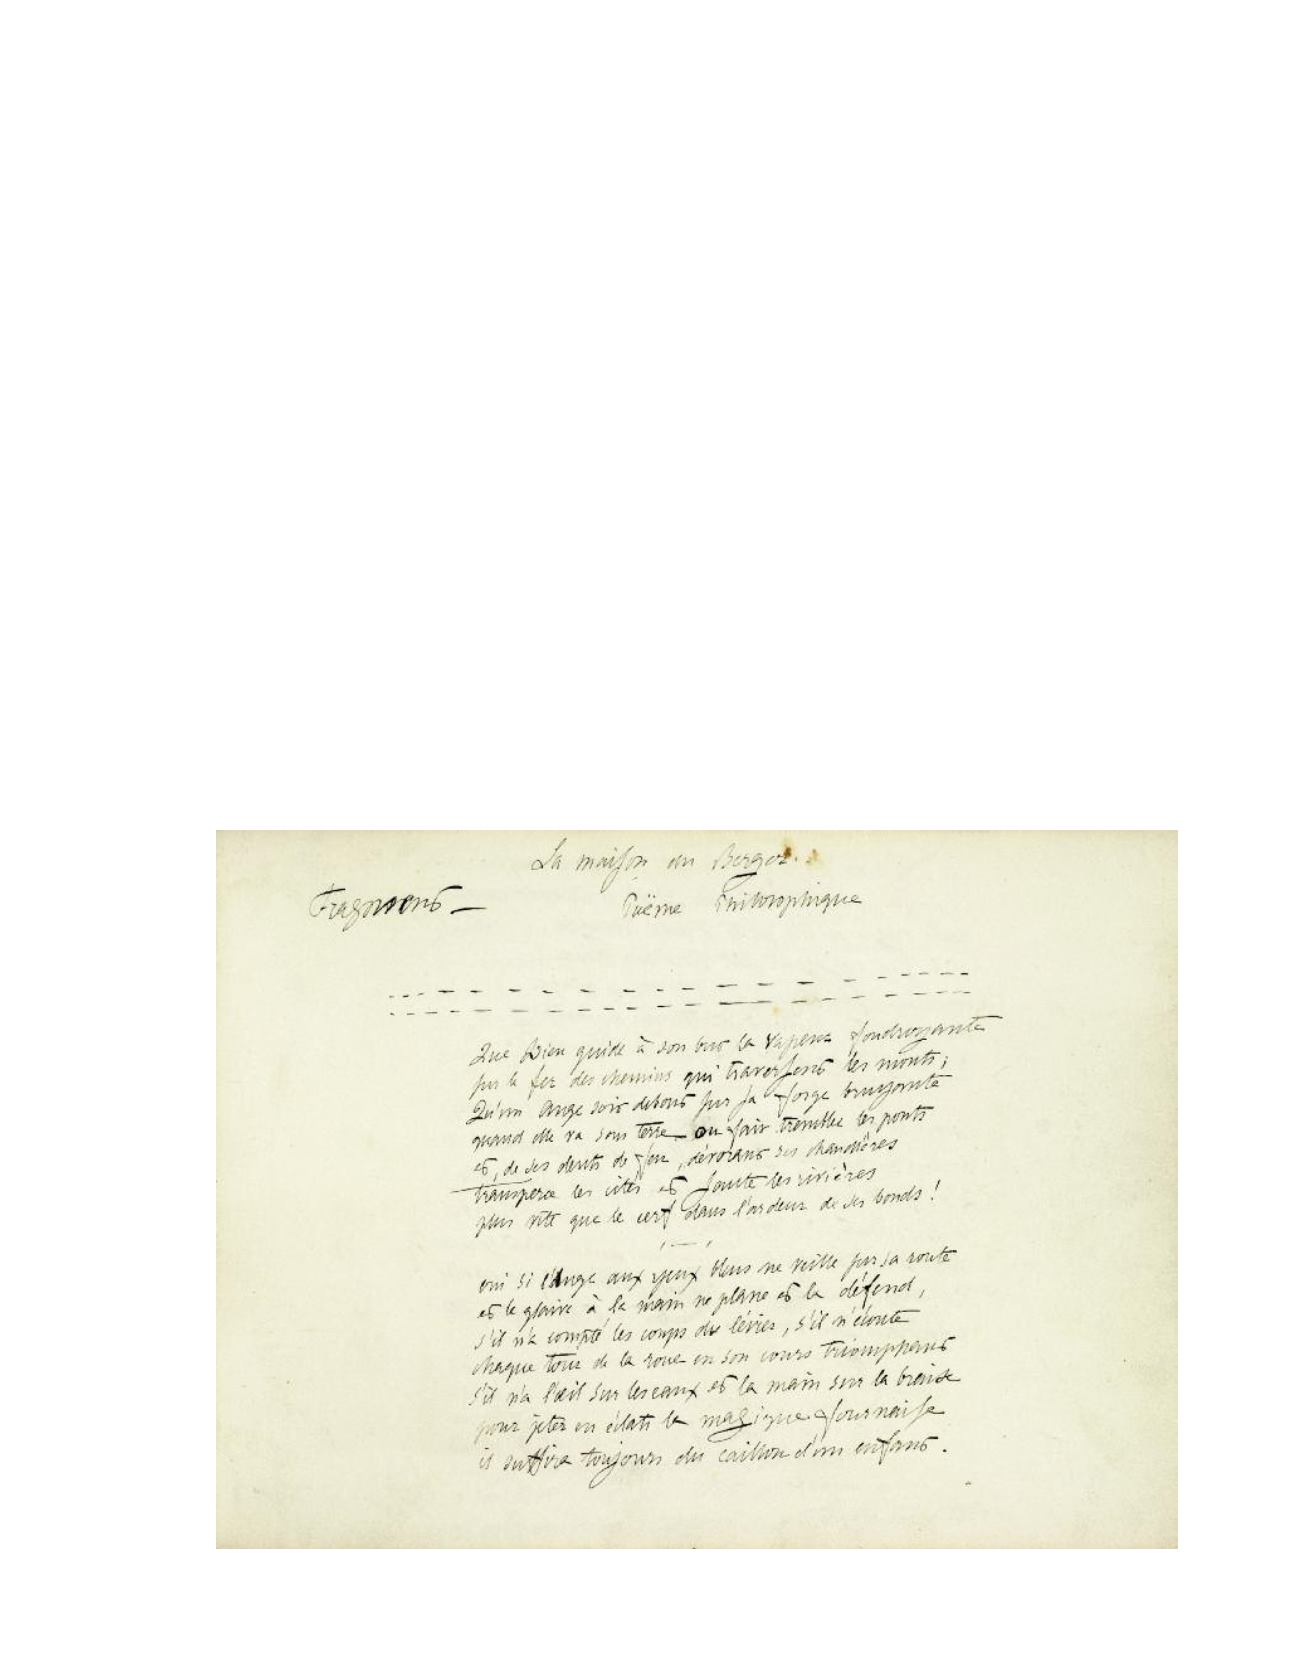 La maison du Berger.
Fragments —
Poëme Philosophique
Que Dieu guide à son but la vapeur foudroyante
sur le fer des chemins qui traversent les monts ;
Qu'un Ange soit debout sur sa forge bruyante
quand elle va sous terre ou fait trembler les ponts
et, de ses dents de feu, dévorant ses chaudières
transperce les cités et saute les rivières
plus vite que le cerf dans l'ardeur de ses bonds !
oui si l'Ange aux yeux bleus ne veille sur sa route
et le glaive à la main ne plane et la défend,
s'il n'a compté les coups du lévier, s'il n'écoute
chaque tour de la roue en son cours triomphant
s'il n'a l'œil sur les eaux et la main sur la braise
pour jeter en éclats la magique fournaise
il suffira toujours du caillou d'un enfant.